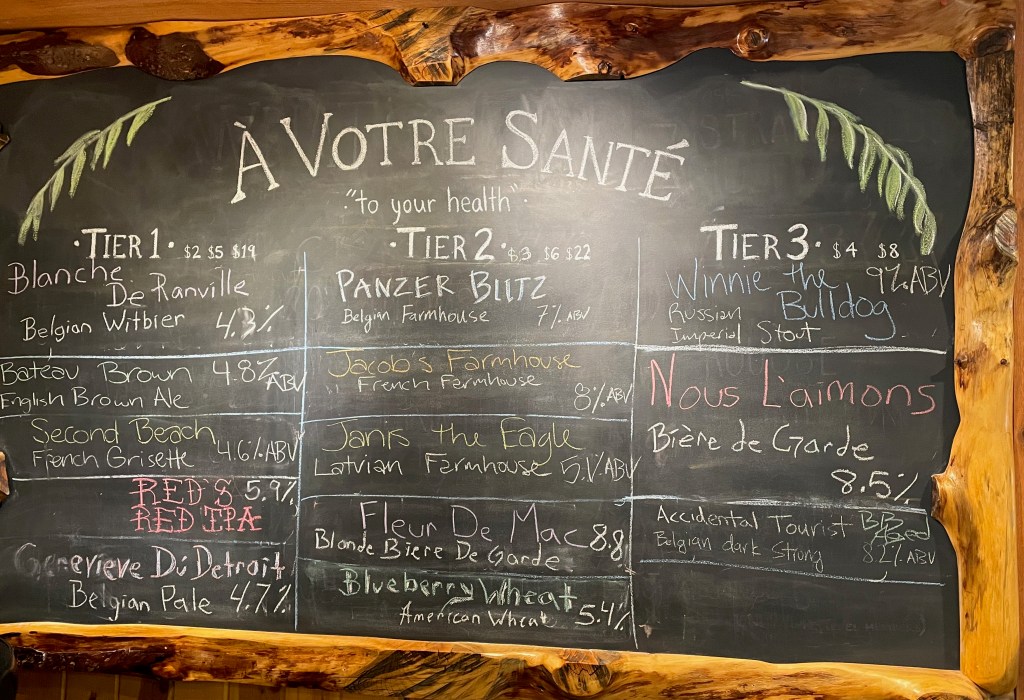 À VOTRE SANTÉ
"to your health"
·TIER 1· $2 $5 $19
Blanche
De Ranville
Belgian Witbier 4.3%
Bateau Brown 4.8% ABV
English Brown Ale
Second Beach
French Grisette 4.6% ABV
RED'S 5.9%
RED IPA
Genevieve Du Detroit
Belgian Pale 4.7%
·TIER 2· $3 $6 $22
PANZER BLITZ
Belgian Farmhouse 7% ABV
Jacob's Farmhouse
French Farmhouse
8% ABV
Janis the Eagle
Latvian Farmhouse 5.1% ABV
Fleur De Mac 8.8%
Blonde Bière De Garde
Blueberry Wheat
American Wheat 5.4%
TIER 3· $4 $8
Winnie the 9% ABV
Bulldog
Russian
Imperial Stout
Nous L'aimons
Bière de Garde
8.5%
Accidental Tourist BB Aged
Belgian dark Strong 8.2% ABV